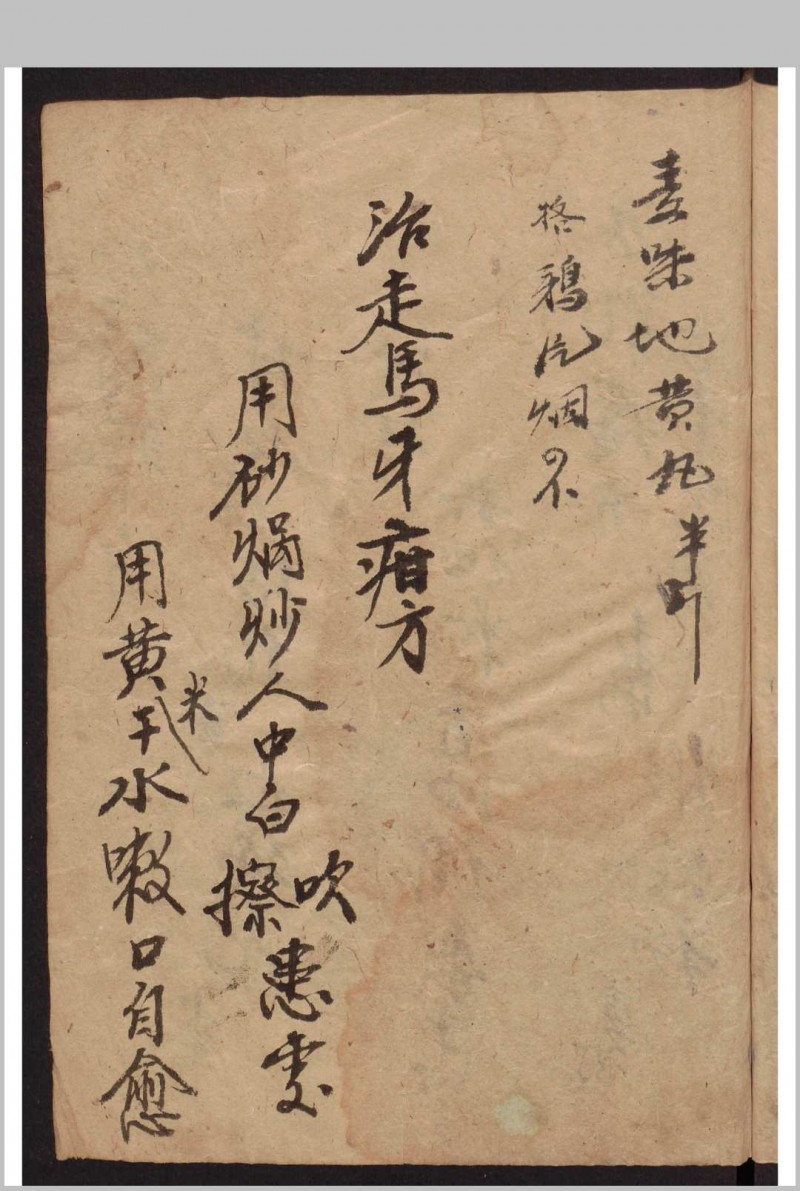 麦味地黄丸半斤
格鴉片烟
治走馬牙疳方
用砂焗炒人中白吹擦患處
用黃米水漱口自愈